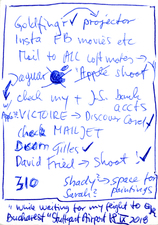 Goldfinger ✓ projector
Insta FB movies etc
Mail to ALL loft motors →
Jaguar Apple shoot ✓
check my + J.S. bank accts
VICTOIRE → Discover Card ✓
check MAILJET
Gilles ✓
David Fried → Shoot ! ✓
310 shady? → space for
Sarah? paintings
"while waiting for my flight to
Bucharest" Stuttgart Airport 2018